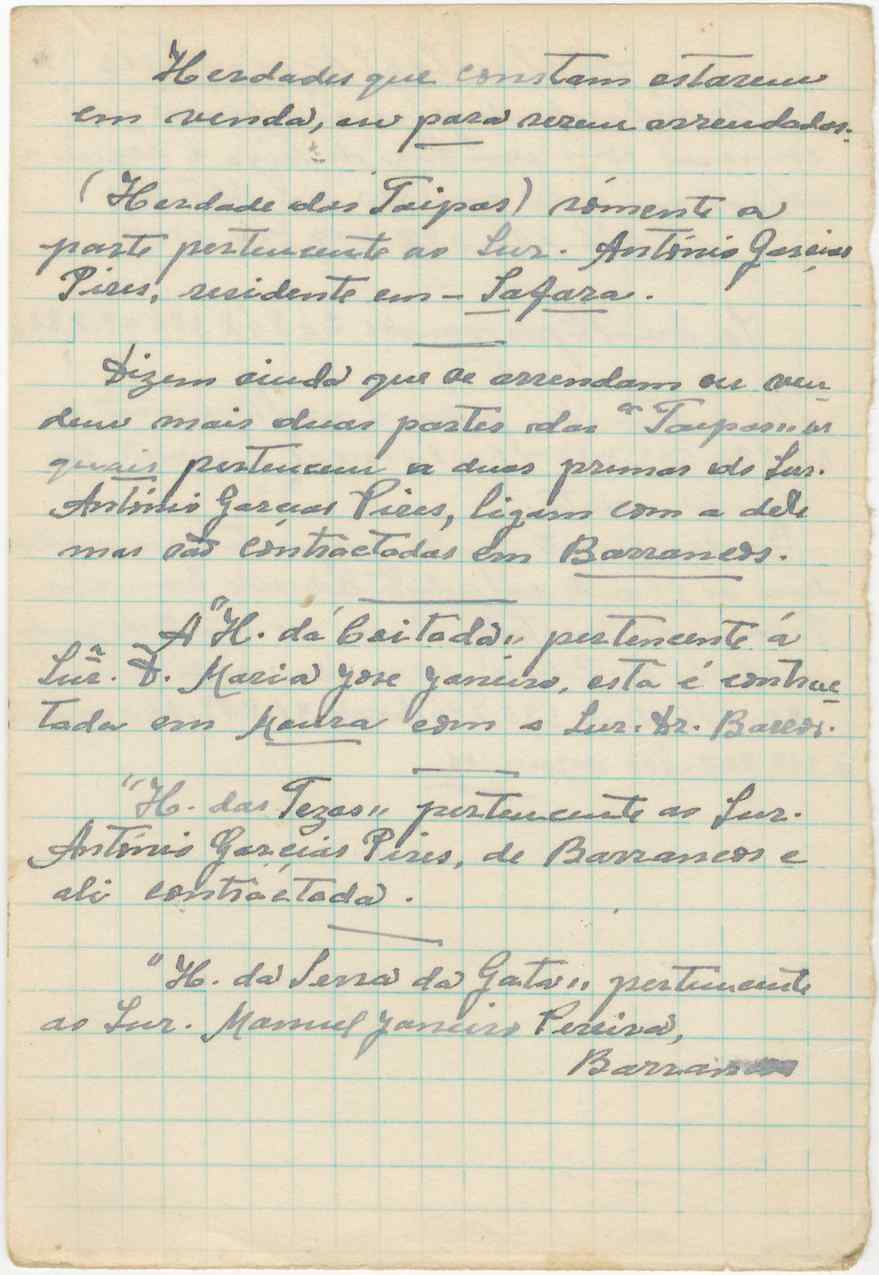 Herdades que constam estarem
em venda, ou para serem arrendadas.
(Herdade das Taipas) sómente a
parte pertencente ao Snr. António Garcias
Pires, residente em - Safara.
Dizem ainda que se arrendam ou ven-
dem mais duas partes das "Taipas" as
quais pertencem a duas primas do Snr.
António Garcias Pires, ligam com a dele
mas são contractadas em Barrancos.
A "H. da Coitada" pertencente á
Snrª. D. Maria José Janeiro, esta é contrac-
tada em Moura com o Snr. Dr.
"H. das Tezas" pertencente ao Snr.
António Garcias Pires, de Barrancos e
ali contráctada.
"H. da Serra da Gata" pertencente
ao Snr. Manuel Janeiro Pereira,